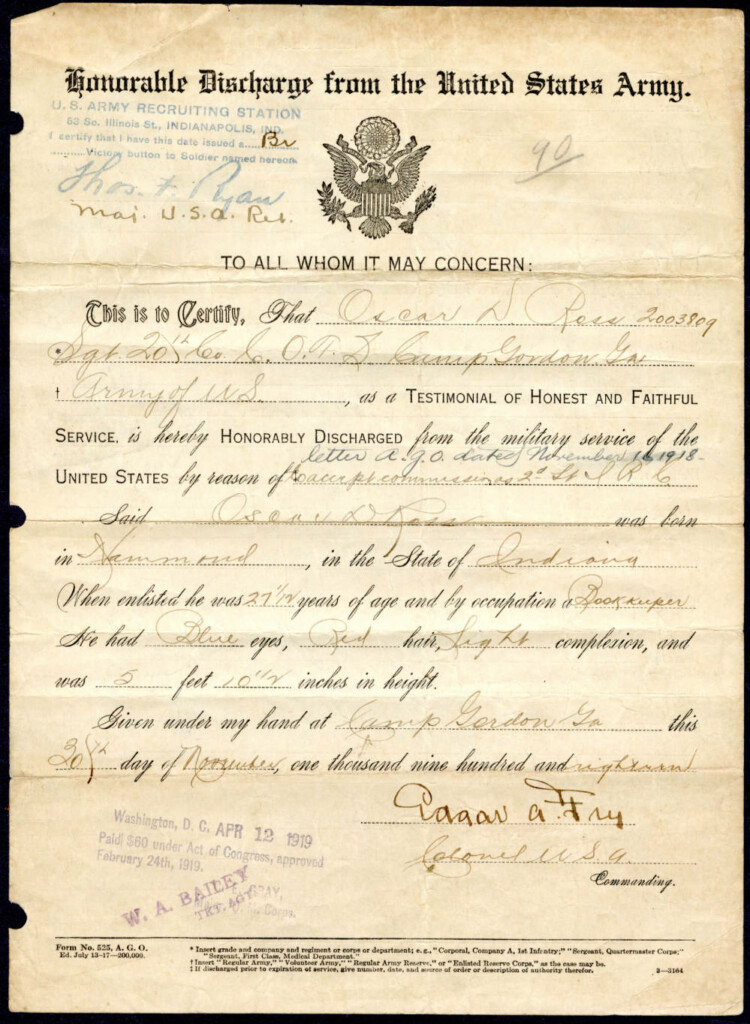 Honorable Discharge from the United States Army.
U. S. ARMY RECRUITING STATION
53 So. Illinois St., INDIANAPOLIS, IND.
I certify that I have this date issued a Br
Victory button to Soldier named hereon.
Thos. F. Ryan
Maj. U.S.A. Ret.
90
TO ALL WHOM IT MAY CONCERN:
This is to Certify, That Oscar D Ross 2003809
* Sgt 20th Co. C. O. T. S Camp Gordon, Ga
† Army of U S., as a TESTIMONIAL OF HONEST AND FAITHFUL
SERVICE, is hereby HONORABLY DISCHARGED from the military service of the
letter A.G.O. dated November 16, 1918
UNITED STATES by reason of ‡ accept commission as 2d Lt
Said Oscar D Ross was born
in Hammond, in the State of Indiana
When enlisted he was 27 1/12 years of age and by occupation a Bookkeeper
He had Blue eyes, Red hair, Light complexion, and
was 5 feet 10 1/2 inches in height.
Given under my hand at Camp Gordon Ga this
30th day of November, one thousand nine hundred and eighteen
Edgar A. Fry
Colonel U.S.A.
Commanding.
Washington, D. C. APR 12 1919
Paid $60 under Act of Congress, approved
February 24th, 1919.
W. A. BAILEY
Corps.
Form No. 525, A. G. O.
Ed. July 13-17—200,000.
* Insert grade and company and regiment or corps or department; e.g., "Corporal, Company A, 1st Infantry;" "Sergeant, Quartermaster Corps;"
"Sergeant, First Class, Medical Department."
† Insert "Regular Army," "Volunteer Army," "Regular Army Reserve," or "Enlisted Reserve Corps," as the case may be.
‡ If discharged prior to expiration of service, give number, date, and source of order or description of authority therefor.
3—3164